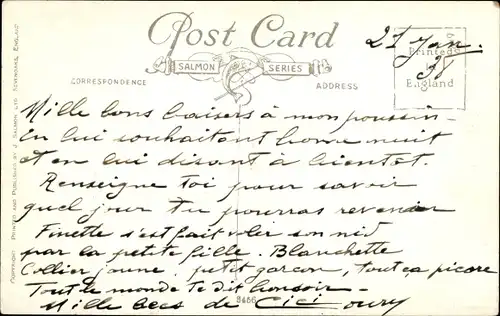 Post Card
21 Jan.
38
SALMON SERIES
Printed
in
England
CORRESPONDENCE
ADDRESS
Mille bons baisers à mon poussin
en lui souhaitant bonne nuit
et en lui disant à bientot.
Renseigne toi pour savoir
quel jour tu pourras revenir
Finette s'est fait voler son nid
par la petite fille. Blanchette
Collier jaune, petit garcon, tout ça picore
Tout le monde te dit bonsoir -
Mille becs de Cici
8466
COPYRIGHT PRINTED AND PUBLISHED BY J. SALMON LTD SEVENOAKS, ENGLAND